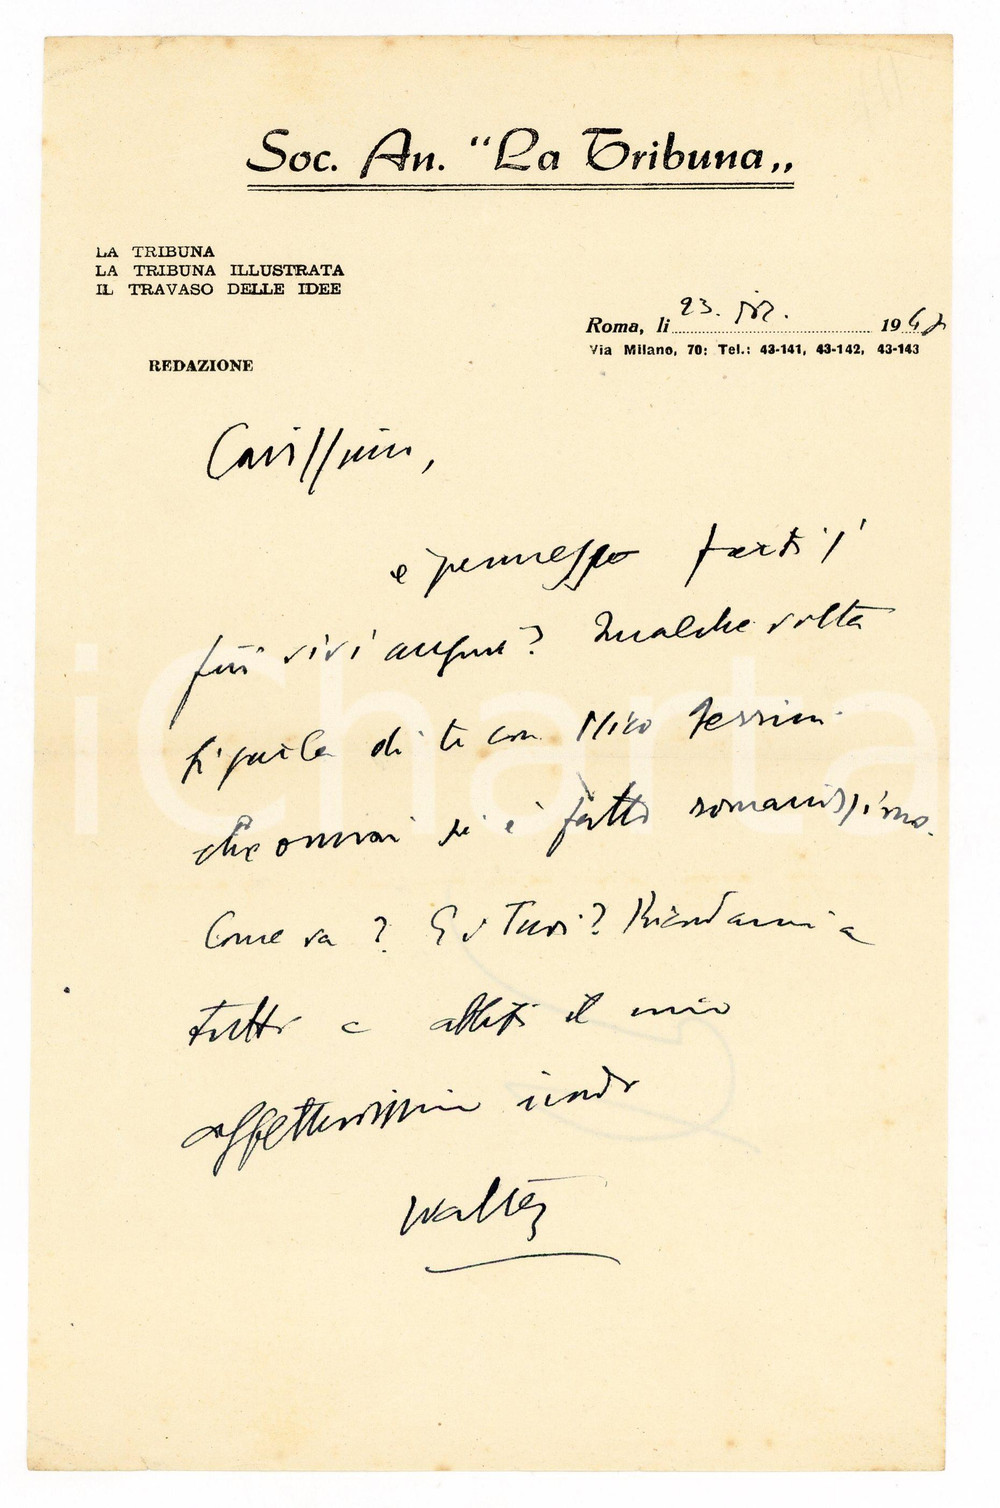 Soc. An. “La Tribuna„
LA TRIBUNA
LA TRIBUNA ILLUSTRATA
IL TRAVASO DELLE IDEE
Roma, li 23. XII. 1947
Via Milano, 70: Tel.: 43-141, 43-142, 43-143
REDAZIONE
Carissimo,
è permesso farti i
più vivi auguri? Qualche volta
si parla di te con Mico
che ormai si è fatto romanissimo.
Come va? E i Tuoi? Ricordami a
tutti e abbiti il mio
affettuosissimo
Walter
iCharta